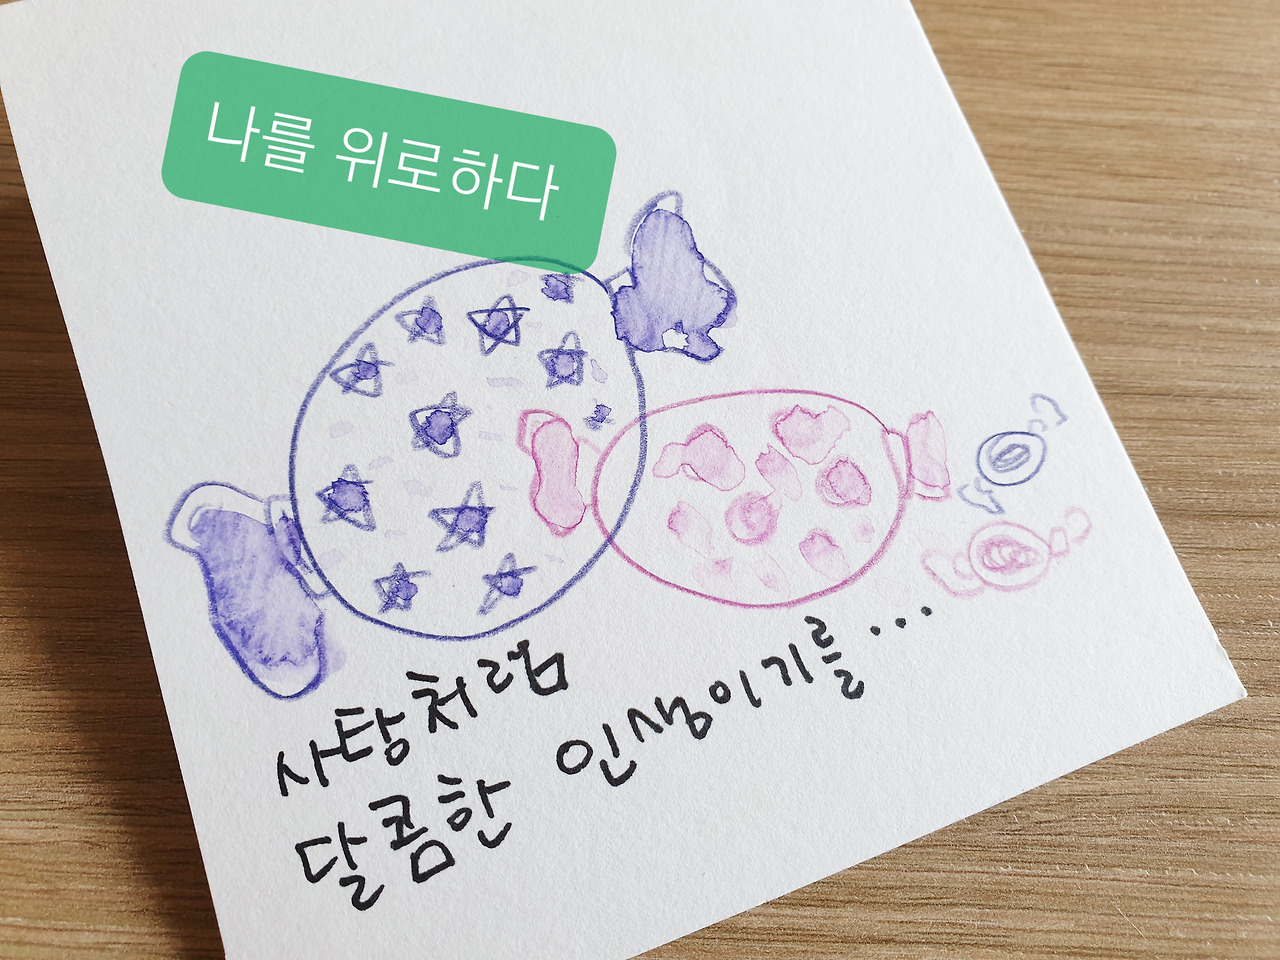 나를 위로하다
사탕처럼
달콤한 인생이기를...